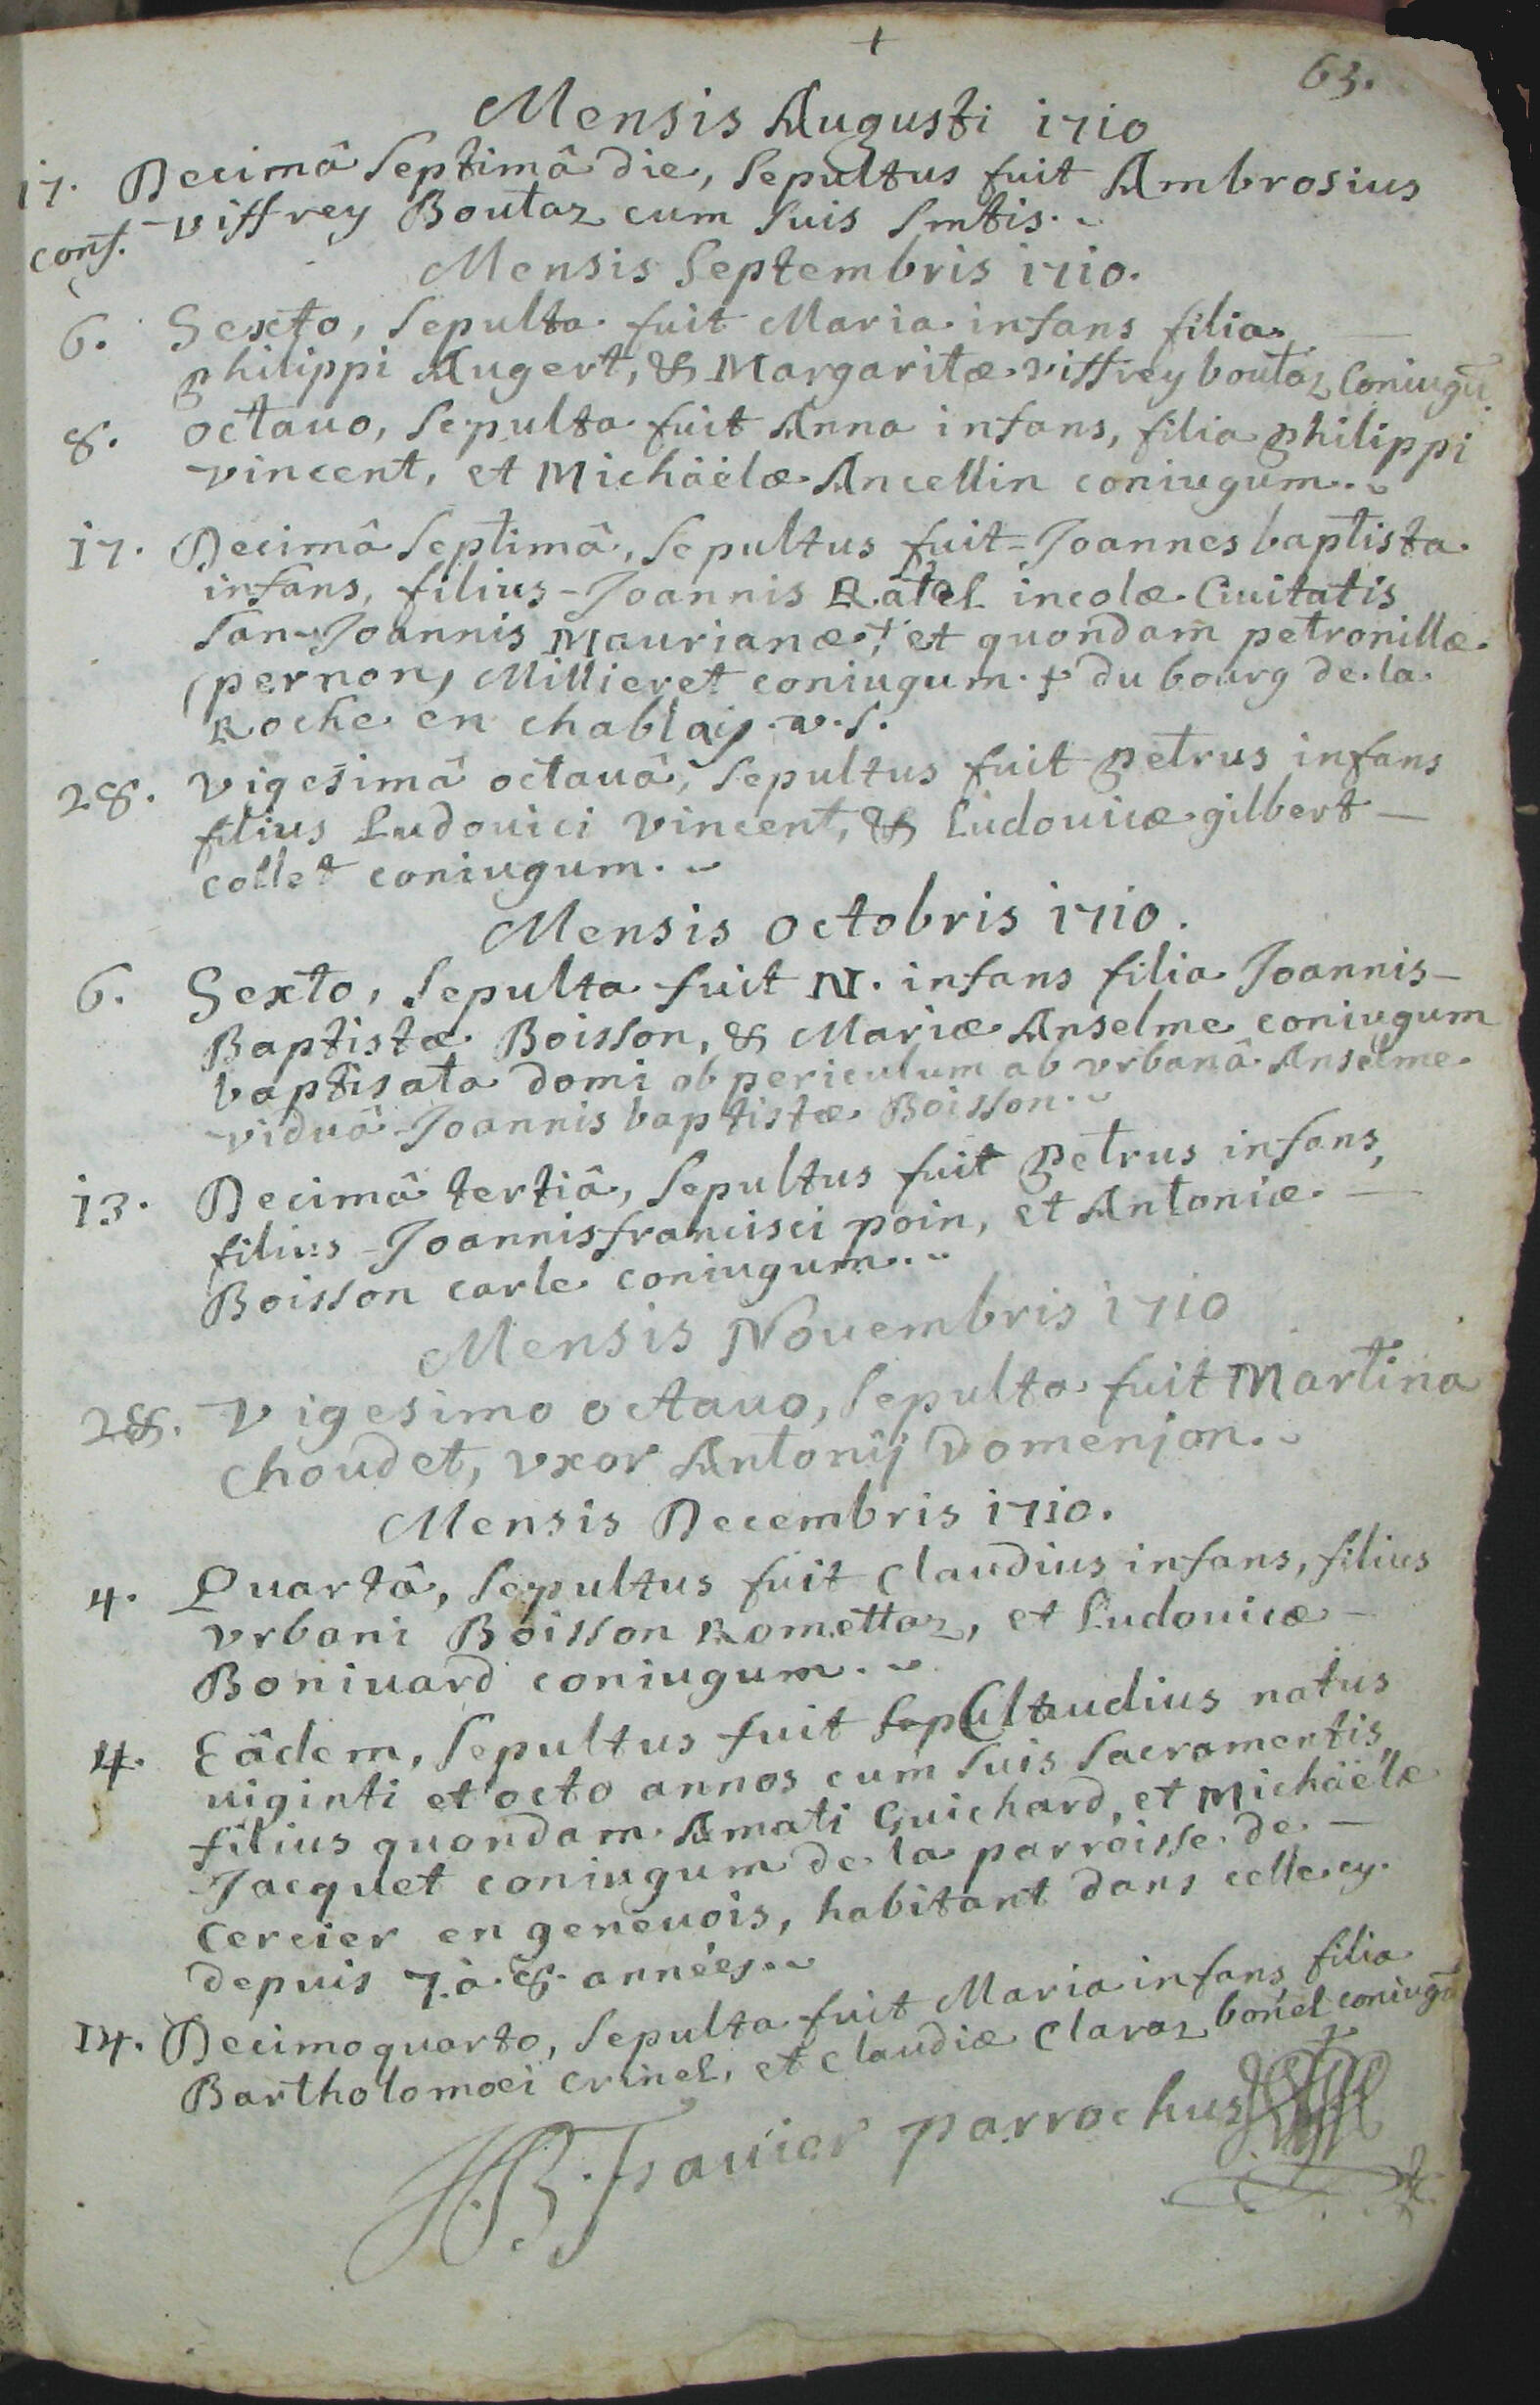 +
63.
Mensis Augusti 1710
17. Decimâ Septimâ die, Sepultus fuit Ambrosius
conf. Viffrey Boutaz cum Suis Smtis.
Mensis Septembris 1710.
6. Sexto, Sepulta fuit Maria infans filia
philippi Augert, & Margaritæ viffrey boutaz Coniugū
8. Octauo, Sepulta fuit Anna infans, filia philippi
vincent, et Michäelæ Ancellin coniugum.
17. Decimâ Septimâ, Sepultus fuit Joannes baptista
infans, filius Joannis Ratel incolæ Ciuitatis
San-Joannis Maurianæ, + et quondam petronillæ
(pernon) Millieret coniugum. + du bourg de la
Roche en chablaij. v. s.
28. Vigesimâ octauâ, Sepultus fuit petrus infans
filius Ludouici Vincent, & Ludouicæ gilbert
collet coniugum.
Mensis Octobris 1710.
6. Sexto, Sepulta fuit N. infans filia Joannis
Baptistæ Boisson, & Mariæ Anselme coniugum
baptisata domi ob periculum ab vrbanâ Anselme
viduâ Joannis baptistæ Boisson.
13. Decimâ tertiâ, Sepultus fuit petrus infans,
filius Joannisfrancisci poin, et Antoniæ
Boisson carle coniugum.
Mensis Nouembris 1710
28. Vigesimo octauo, Sepulta fuit Martina
choudet, vxor Antonij Domenjon.
Mensis Decembris 1710.
4. Quartâ, Sepultus fuit Claudius infans, filius
vrbani Boisson Romettaz, et Ludouicæ
Boniuard coniugum.
4. Eâdem, Sepultus fuit Claudius natus
uiginti et octo annos cum Suis Sacramentis,
filius quondam Amati Guichard, et Michäelæ
Jacquet coniugum de la parroisse de
Cercier en geneuois, habitant dans celle cy
depuis 7. à 8. années.
14. Decimoquarto, Sepulta fuit Maria infans filia
Bartholomoei crinel, et claudiæ Claraz bonel coniugū
parrochus